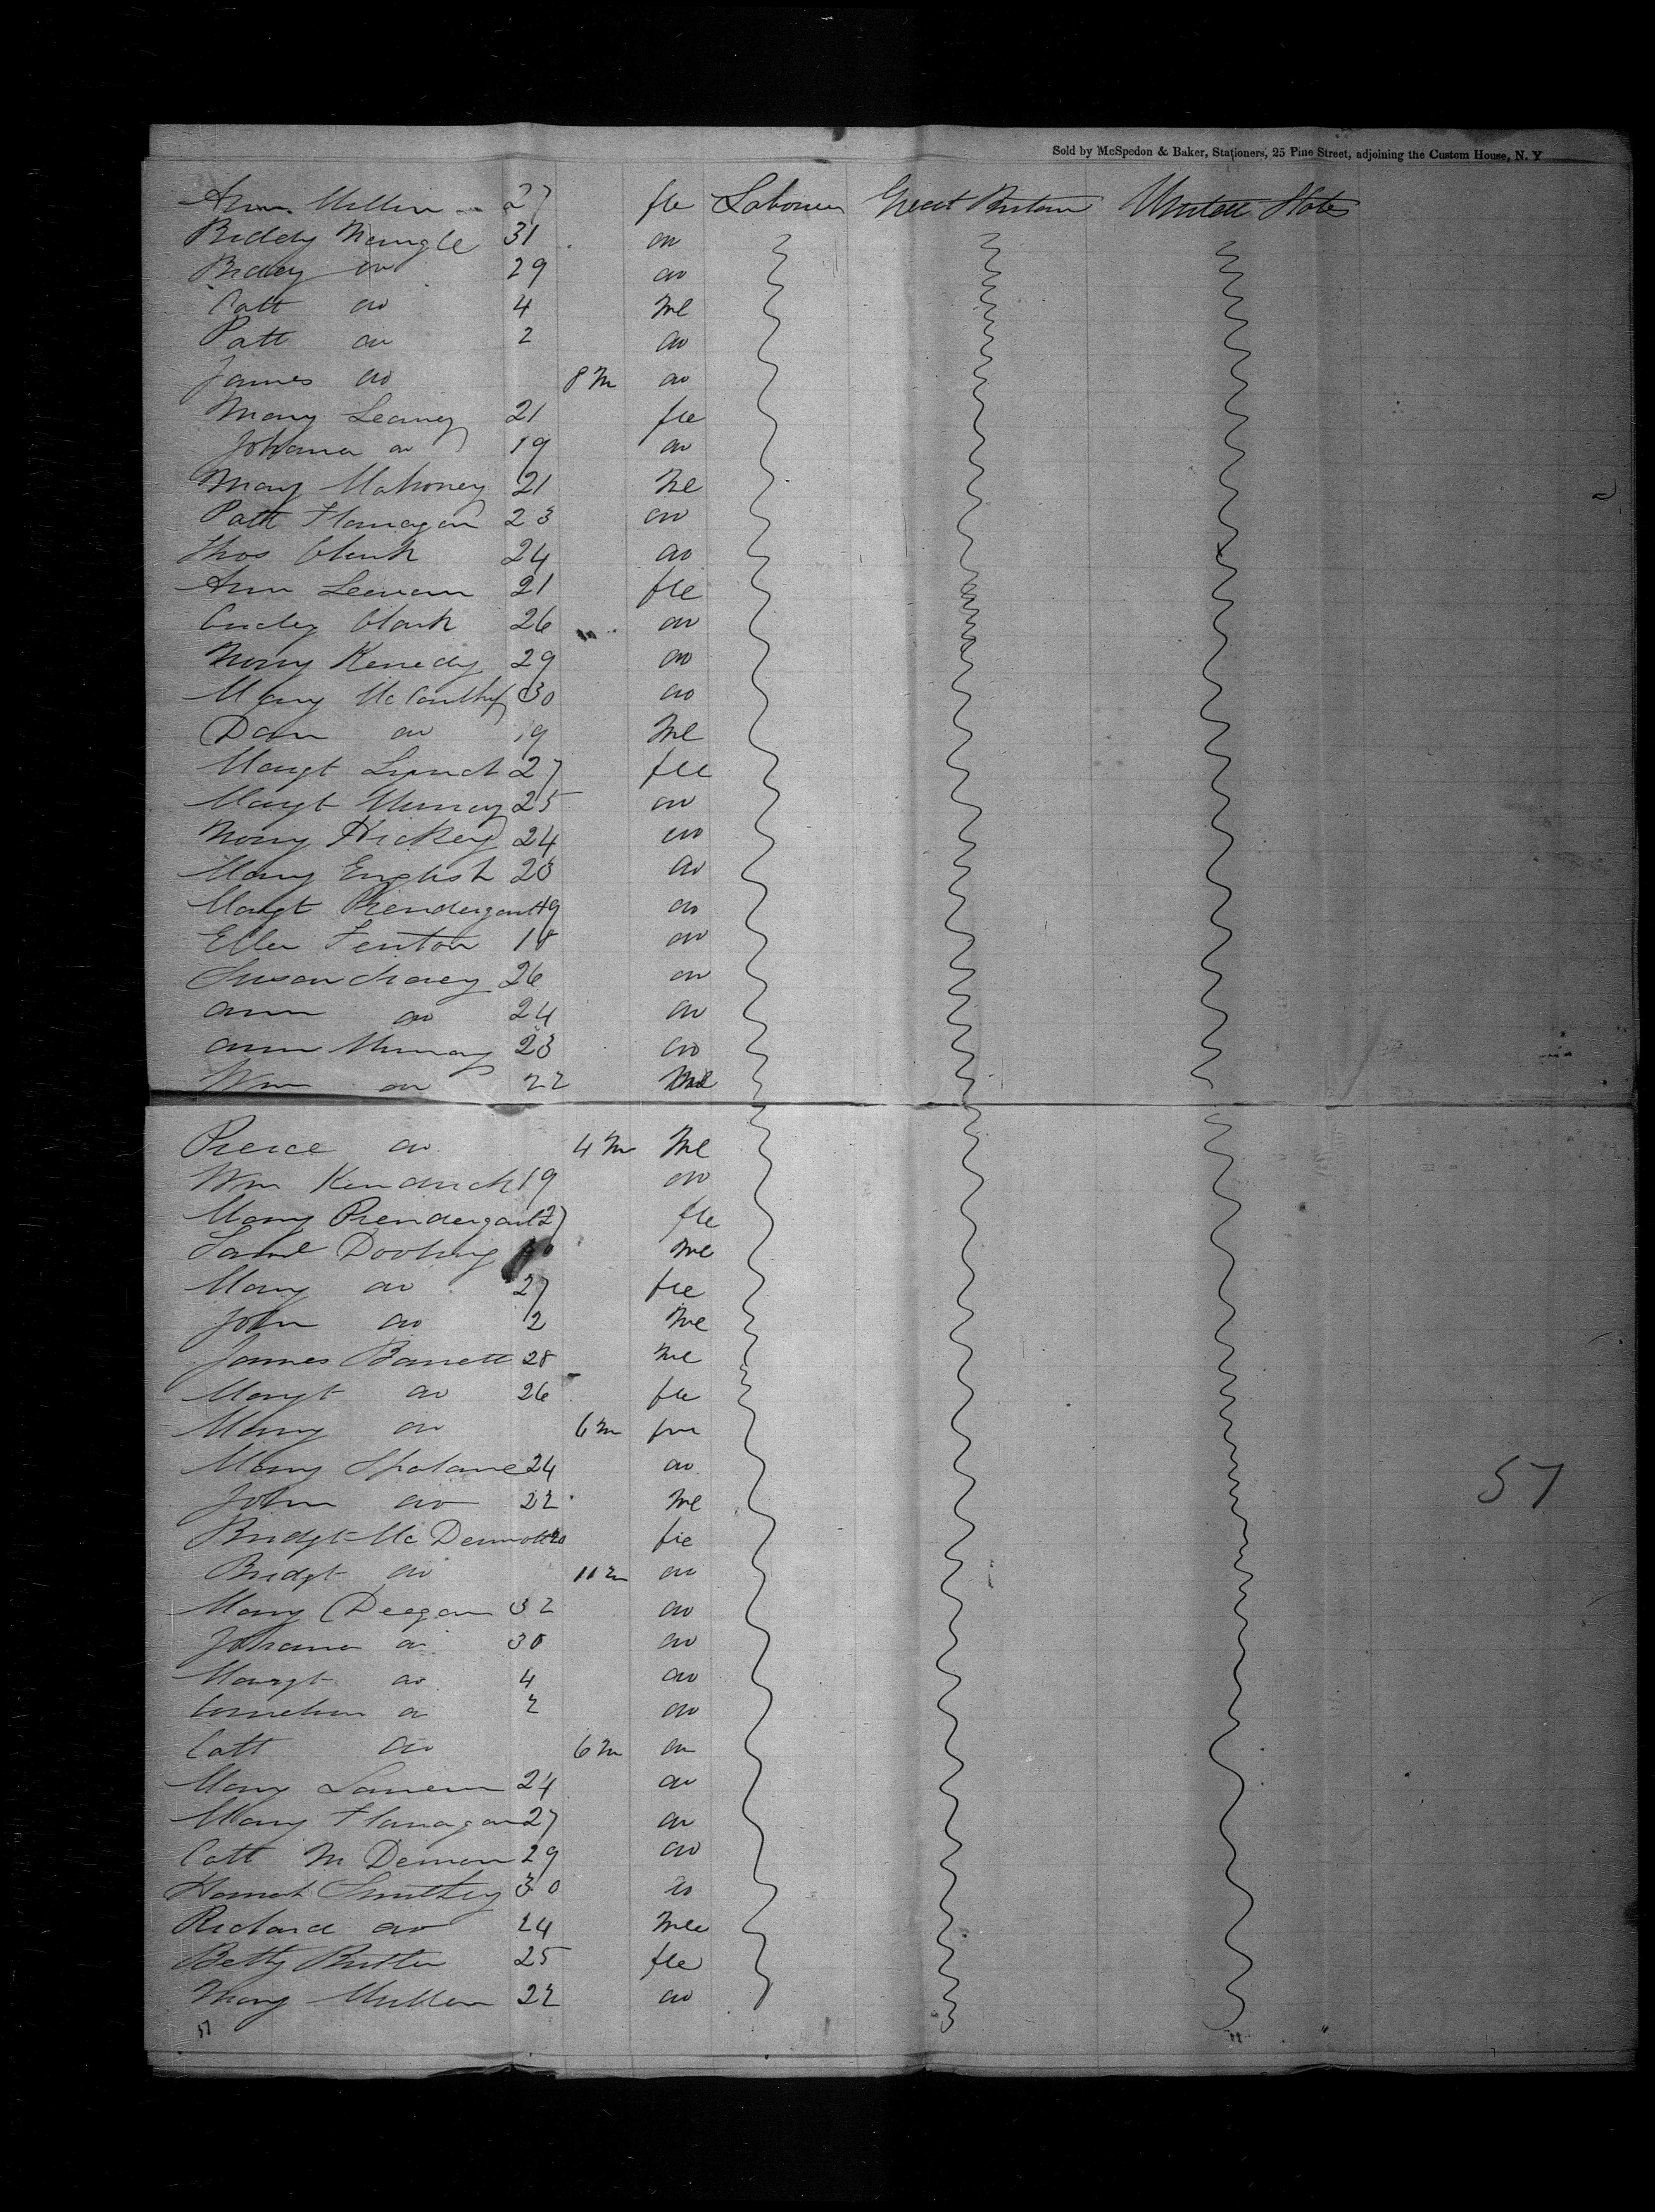 Sold by McSpedon & Baker, Stationers, 25 Pine Street, adjoining the Custom House, N. Y
Ann Mullin 27 fle Labourer Great Britain United States
Biddy Nangle 31 do
Biddy do 29 do
Catt do 4 Me
Patt do 2 do
James do 8 M do
Mary Leamy 21 fle
Johana do 19 do
Mary Mahoney 21 Me
Patt Flanagan 23 do
Thos Clark 24 do
Ann 21 fle
Clark 26 do
Mary Kenedy 29 do
Mary McCarthy 30 do
Dan do 19 Me
Margt Lynch 27 fle
Margt Murray 25 do
Mary Hickey 24 do
Mary English 23 do
Margt Prendergast 19 do
Ellen Fenton 18 do
Susan 26 do
Ann do 24 do
Ann Murray 23 do
Wm do 22 Me
Pierce do 4 M Me
Wm Kendrick 19 do
Mary Prendergast 27 fle
Saml Dooling Me
Mary do 27 fle
John do 2 Me
James Barrett 28 Me
Margt do 26 fle
Mary do 6 M fle
Mary Spolane 24 do
John do 22 Me
Bridgt McDermott 20 fle
Bridgt do 11 M do
Mary Deegan 32 do
Johana do 30 do
Margt do 4 do
Cornelius do 2 do
Catt do 6 M do
Mary 24 do
Mary Flanagan 27 do
Catt 29 do
Hannah 30 do
Richard do 24 Mle
Betty Butler 25 fle
Mary Mullen 22 do
57
57